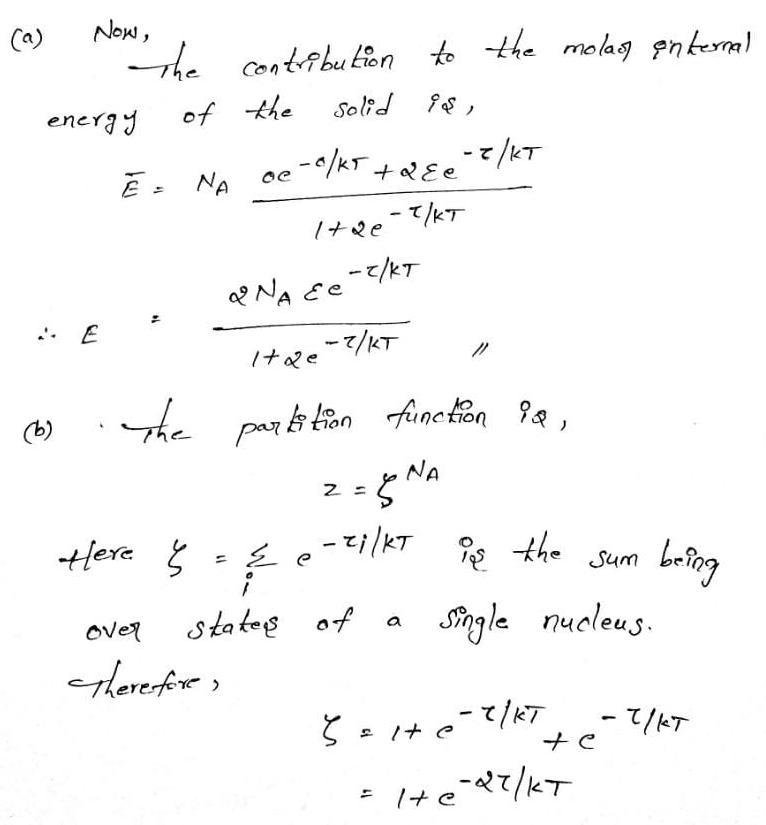 (a) Now,
The contribution to the molar internal
energy of the solid is,
Ē = NA (0e^(-0/kT) + 2εe^(-τ/kT)) / (1+2e^(-τ/kT))
∴ E = (2NA εe^(-τ/kT)) / (1+2e^(-τ/kT)) //
(b) . The partition function is,
z = ζ^NA
Here ζ = Σ_i e^(-τi/kT) is the sum being
over states of a single nucleus.
Therefore,
ζ = 1+e^(-τ/kT) + e^(-τ/kT)
= 1+e^(-2τ/kT)